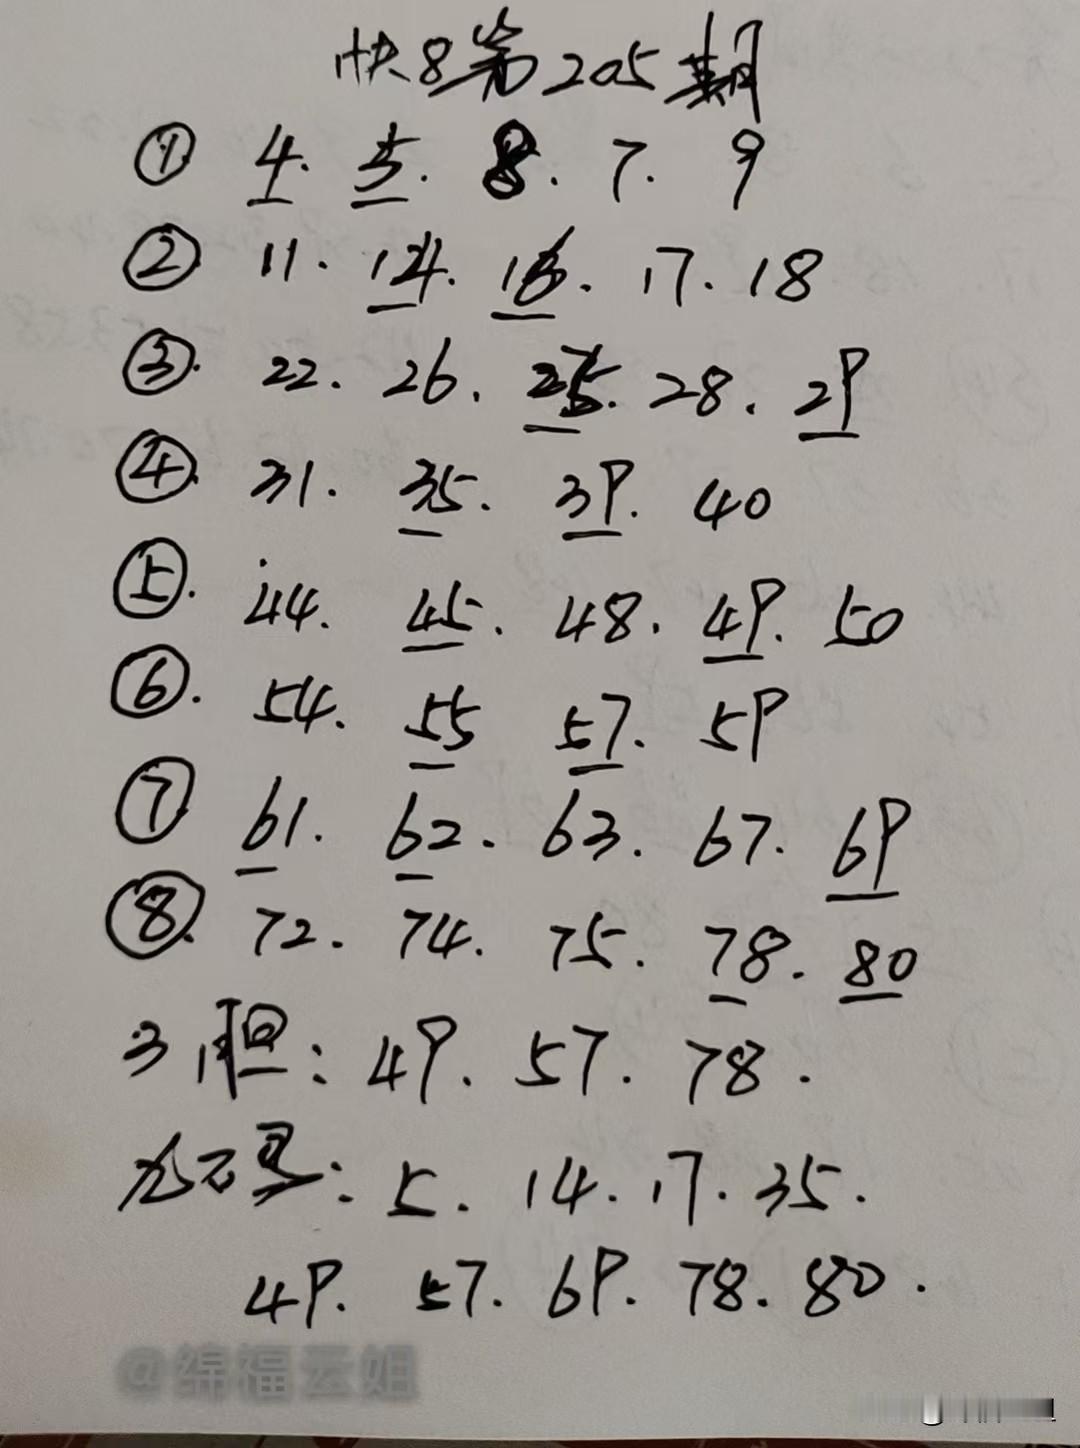 快8第205期
① 4. 5. 8. 7. 9
② 11. 14. 16. 17. 18
③. 22. 26. 25. 28. 29
④. 31. 35. 39. 40
⑤. 44. 45. 48. 49. 50
⑥. 54. 55 57. 59
⑦ 61. 62. 63. 67. 69
⑧. 72. 74. 75. 78. 80
3胆: 49. 57. 78.
: 5. 14. 17. 35.
49. 57. 69. 78. 80.
@绵福云姐